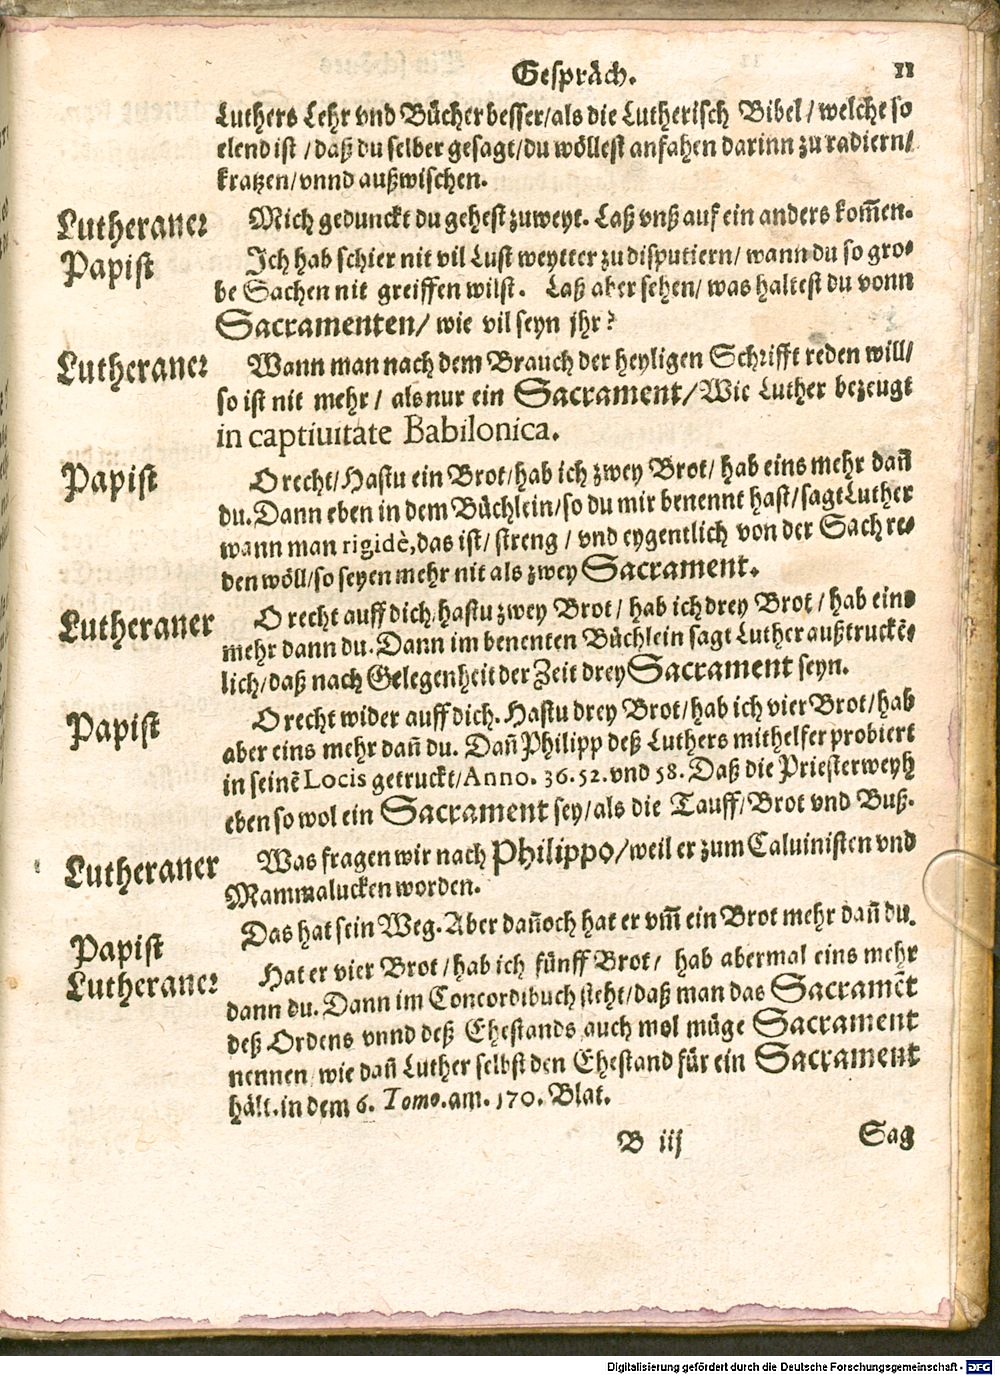 Gespräch. 11
Luthers Lehr vnd Bücher besser/als die Lutherisch Bibel/welche so
elend ist/daß du selber gesagt/du wöllest anfahen darinn zu radiern/
kratzen/vnnd außwischen.
Lutheraner Mich gedunckt du gehest zuweyt. Laß vnß auf ein anders kom̄en.
Papist Ich hab schier nit vil Lust weytter zu disputiern/wann du so gro-
be Sachen nit greiffen wilst. Laß aber sehen/was haltest du vonn
Sacramenten/wie vil seyn jhr?
Lutheraner Wann man nach dem Brauch der heyligen Schrifft reden will/
so ist nit mehr/als nur ein Sacrament/Wie Luther bezeugt
in captiuitate Babilonica.
Papist O recht/Hastu ein Brot/hab ich zwey Brot/hab eins mehr dañ
du. Dann eben in dem Büchlein/so du mir benennt hast/sagt Luther
wann man rigidè, das ist/streng/vnd eygentlich von der Sach re-
den wöll/so seyen mehr nit als zwey Sacrament.
Lutheraner O recht auff dich/hastu zwey Brot/hab ich drey Brot/hab eins
mehr dann du. Dann im benenten Büchlein sagt Luther außtruckē-
lich/daß nach Gelegenheit der Zeit drey Sacrament seyn.
Papist O recht wider auff dich. Hastu drey Brot/hab ich vier Brot/hab
aber eins mehr dañ du. Dañ Philipp deß Luthers mithelfer probiert
in seinē Locis getruckt/Anno. 36. 52. vnd 58. Daß die Priesterweyh
eben so wol ein Sacrament sey/als die Tauff/Brot vnd Buß.
Lutheraner Was fragen wir nach Philippo/weil er zum Caluinisten vnd
Mammalucken worden.
Papist Das hat sein Weg. Aber dañoch hat er vm̄ ein Brot mehr dañ du.
Lutheraner Hat er vier Brot/hab ich fünff Brot/hab abermal eins mehr
dann du. Dann im Concordibuch steht/daß man das Sacramēt
deß Ordens vnnd deß Ehestands auch wol müge Sacrament
nennen/wie dañ Luther selbst den Ehestand für ein Sacrament
hält. in dem 6. Tomo. am. 170. Blat.
B iij Sag
Digitalisierung gefördert durch die Deutsche Forschungsgemeinschaft - DFG